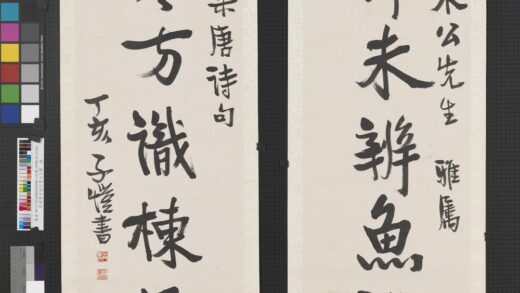 公先生 雅屬
未辨魚
唐诗句
方識棟
丁亥 子愷書